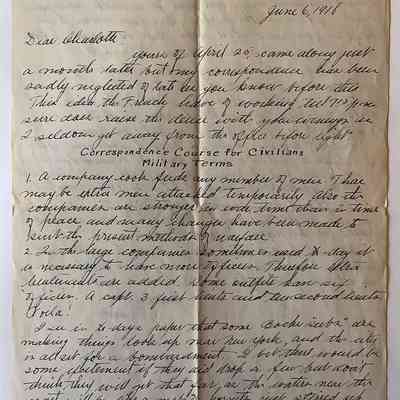 June 6, 1918
Dear Charlotte
yours of April 20 came along just
a month later but my correspondence has been
sadly neglected of late as you know before this
This idea the French have of working till 7:30 p.m.
sure does raise the deuce with your evenings as
I seldom get away from the office before eight
Correspondence Course for Civilians
Military Terms
1. A company cook feeds any number of men. There
may be extra men attached temporarily also the
companies are stronger in war time than in time
of peace and many changes have been made to
suit the present methods of warfare.
2. In the large companies sometimes used to day it
is necessary to have more officers. Therefore extra
lieutenants are added. Some outfits have six
officers. A capt. 3 first lieuts and two second lieuts
Voila!
I see in to days paper that some Boche "subs" are
making things look up near New York, and the city
is all set for a bombardment. I bet there would be
some excitement if they did drop a few but don't
think they will get that far, as the waters near the